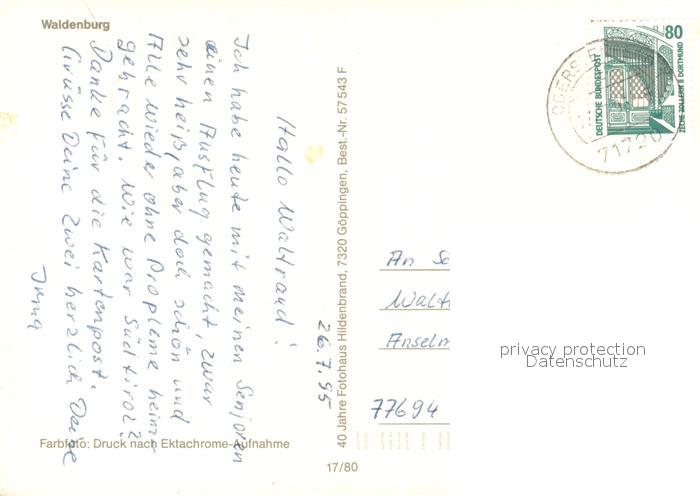 Waldenburg
26.7.95
Hallo Waltraud!
Ich habe heute mit meinen Senjoren
einen Ausflug gemacht, zwar
sehr heiß, aber doch schön und
Alle wieder ohne Propleme heim-
gebracht. Wie war Südtirol?
Danke für die Kartenpost.
Grüsse Deine zwei herzlich Deine
Irma
Farbfoto: Druck nach Ektachrome-Aufnahme
40 Jahre Fotohaus Hildenbrand, 7320 Göppingen, Best.-Nr. 57543 F
17/80
80
DEUTSCHE BUNDESPOST
ZECHE ZOLLERN II DORTMUND
71720
An
Walt
Anselm
77694
privacy protection
Datenschutz